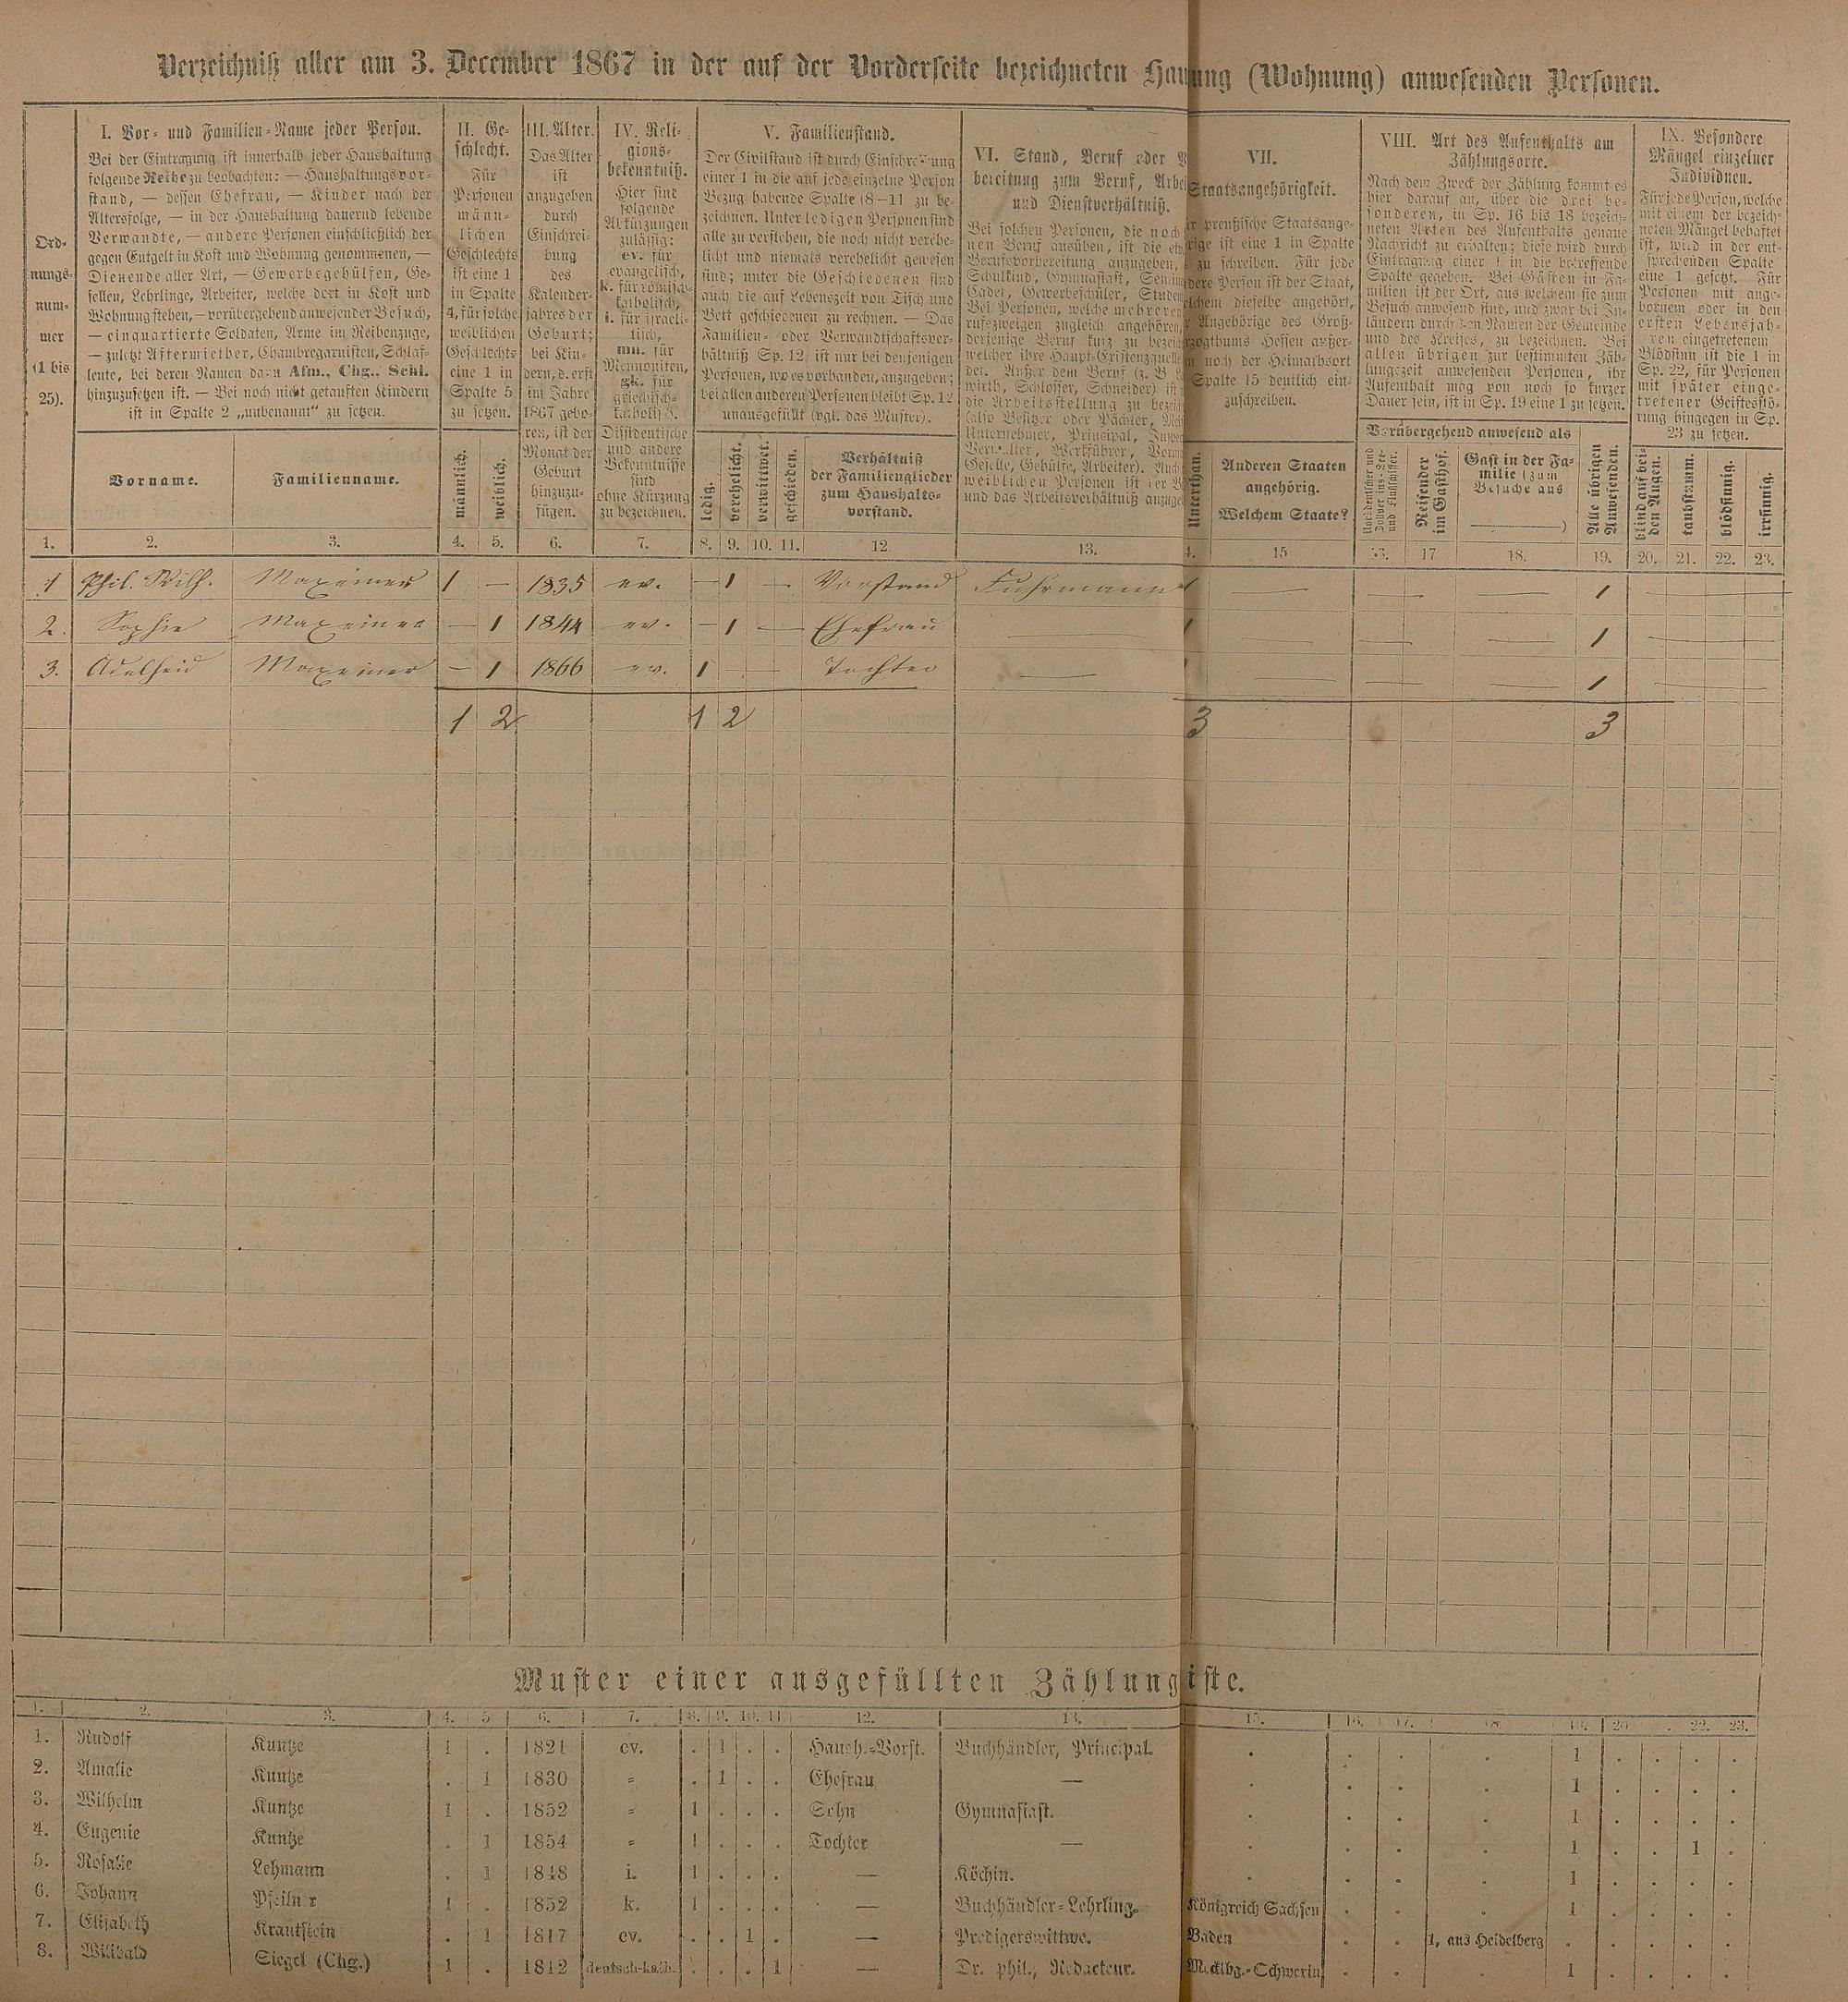 Verzeichniß aller am 3. December 1867 in der auf der Vorderseite bezeichneten Hau ung (Wohnung) anwesenden Personen.
Ord-
nungs-
num-
mer
(1 bis
25).
I. Vor- und Familien-Name jeder Person.
Bei der Eintragung ist innerhalb jeder Haushaltung
folgende Reihe zu beobachten: — Haushaltungsvor-
stand, — dessen Ehefrau, — Kinder nach der
Altersfolge, — in der Haushaltung dauernd lebende
Verwandte, — andere Personen einschließlich der
gegen Entgelt in Kost und Wohnung genommenen, —
Dienende aller Art, — Gewerbsgehülfen, Ge-
sellen, Lehrlinge, Arbeiter, welche dort in Kost und
Wohnung stehen, — vorübergehend anwesender Besuch,
— einquartierte Soldaten, Arme im Reihenzuge,
— zuletzt Aftermiether, Chambregarnisten, Schlaf-
leute, bei deren Namen dazu Afm., Chg., Schl.
hinzuzusetzen ist. — Bei noch nicht getauften Kindern
ist in Spalte 2 „unbenannt“ zu setzen.
Vorname.
Familienname.
II. Ge-
schlecht.
Für
Personen
männ-
lichen
Geschlechts
ist eine 1
in Spalte
4, für solche
weiblichen
Geschlechts
eine 1 in
Spalte 5
zu setzen.
männlich.
weiblich.
III. Alter.
Das Alter
ist
anzugeben
durch
Einschrei-
bung
des
Kalender-
jahres der
Geburt;
bei Kin-
dern, d. erst
im Jahre
1867 gebo-
ren, ist der
Monat der
Geburt
hinzuzu-
fügen.
IV. Reli-
gions-
bekenntniß.
Hier sind
folgende
Abkürzungen
zulässig:
ev. für
evangelisch,
k. für römisch-
katholisch,
i. für israeli-
tisch,
mn. für
Mennoniten,
gk. für
griechisch-
katholisch.
Dissidentische
und andere
Bekenntnisse
sind
ohne Kürzung
zu bezeichnen.
V. Familienstand.
Der Civilstand ist durch Einschreibung
einer 1 in die auf jede einzelne Person
Bezug habende Spalte (8—11) zu be-
zeichnen. Unter ledigen Personen sind
alle zu verstehen, die noch nicht verehe-
licht und niemals verehelicht gewesen
sind; unter die Geschiedenen sind
auch die auf Lebenszeit von Tisch und
Bett geschiedenen zu rechnen. — Das
Familien- oder Verwandtschaftsver-
hältniß Sp. 12 ist nur bei denjenigen
Personen, wo es vorhanden, anzugeben;
bei allen anderen Personen bleibt Sp. 12
unausgefüllt (vgl. das Muster).
ledig.
verehelicht.
verwittwet.
geschieden.
Verhältniß
der Familienglieder
zum Haushalts-
vorstand.
VI. Stand, Beruf oder
bereitung zum Beruf, Arbei
und Dienstverhältniß.
Bei solchen Personen, die noch
nen Beruf ausüben, ist die etw
Berufsvorbereitung anzugeben,
Schulkind, Gymnasiast, Semina
Cadet, Gewerbeschüler, Studen
Bei Personen, welche mehreren
rufszweigen zugleich angehören,
derjenige Beruf kurz zu bezeich
welcher ihre Haupt-Existenzquelle
det. Außer dem Beruf (z. B.
wirth, Schlosser, Schneider) ist
die Arbeitsstellung zu bezeich
(also Besitzer oder Pächter,
Unternehmer, Principal, Inspec
Verwalter, Werkführer,
Geselle, Gehülfe, Arbeiter). Auch
weiblichen Personen ist der B
und das Arbeitsverhältniß anzuge
VII.
Staatsangehörigkeit.
preußische Staatsange-
rige ist eine 1 in Spalte
zu schreiben. Für jede
dere Person ist der Staat,
lchem dieselbe angehört,
Angehörige des Groß-
zogthums Hessen außer-
noch der Heimathsort
Spalte 15 deutlich ein-
zuschreiben.
Unterthan.
Anderen Staaten
angehörig.
Welchem Staate?
VIII. Art des Aufenthalts am
Zählungsorte.
Nach dem Zweck der Zählung kommt es
hier darauf an, über die drei be-
sonderen, in Sp. 16 bis 18 bezeich-
neten Arten des Aufenthalts genaue
Nachricht zu erhalten; diese wird durch
Eintragung einer 1 in die betreffende
Spalte gegeben. Bei Gästen in Fa-
milien ist der Ort, aus welchem sie zum
Besuch anwesend sind, und zwar bei In-
ländern durch den Namen der Gemeinde
und des Kreises, zu bezeichnen. Bei
allen übrigen zur bestimmten Zäh-
lungszeit anwesenden Personen, ihr
Aufenthalt mag von noch so kurzer
Dauer sein, ist in Sp. 19 eine 1 zu setzen.
Vorübergehend anwesend als
Norddeutscher und
Zollver ins-See-
und Flußschiffer.
Reisender
im Gasthof.
Gast in der Fa-
milie (zum
Besuche aus
)
Alle übrigen
Anwesenden.
IX. Besondere
Mängel einzelner
Individuen.
Für jede Person, welche
mit einem der bezeich-
neten Mängel behaftet
ist, wird in der ent-
sprechenden Spalte
eine 1 gesetzt. Für
Personen mit ange-
bornem oder in den
ersten Lebensjah-
ren eingetretenem
Blödsinn ist die 1 in
Sp. 22, für Personen
mit später einge-
tretener Geistesstö-
rung hingegen in Sp.
23 zu setzen.
blind auf bei-
den Augen.
taubstumm.
blödsinnig.
irrsinnig.
1. 2. 3. 4. 5. 6. 7. 8. 9. 10. 11. 12. 13. 15 17 18. 19. 20. 21. 22. 23.
1 Phil. Wilh. Maxeiner 1 — 1835 ev. — 1 — Vorstand Fuhrmann 1 — — — 1 —
2. Sophie Maxeiner — 1 1844 ev. — 1 — Ehefrau 1 — — — 1 —
3. Adelheid Maxeiner — 1 1866 ev. 1 — Tochter — — — — 1 —
1 2 1 2 3 3
Muster einer ausgefüllten Zählung iste.
1. 2. 3. 4. 5 6. 7. 8. 9. 10. 11 12. 13. 15. 16. 17. 18. 19. 20 22. 23.
1. Rudolf Kuntze 1 . 1821 ev. . 1 . . Haush.-Vorst. Buchhändler, Principal. . . . . 1 . . . .
2. Amalie Kuntze . 1 1830 = . 1 . . Ehefrau — . . . . 1 . . . .
3. Wilhelm Kuntze 1 . 1852 = 1 . . . Sohn Gymnasiast. . . . . 1 . . . .
4. Eugenie Kuntze . 1 1854 = 1 . . . Tochter — . . . . 1 . . 1 .
5. Rosalie Lehmann . 1 1848 i. 1 . . . — Köchin. . . . . 1 . . . .
6. Johann Pfeilner 1 . 1852 k. 1 . . . — Buchhändler-Lehrling. Königreich Sachsen . . . 1 . . . .
7. Elisabeth Krautstein . 1 1817 ev. . . 1 . — Predigerswittwe. Baden . . 1, aus Heidelberg . . . . .
8. Willibald Siegel (Chg.) 1 . 1812 deutsch-kath. . . . 1 — Dr. phil., Redacteur. Mecklbg.-Schwerin . . . 1 . . . .